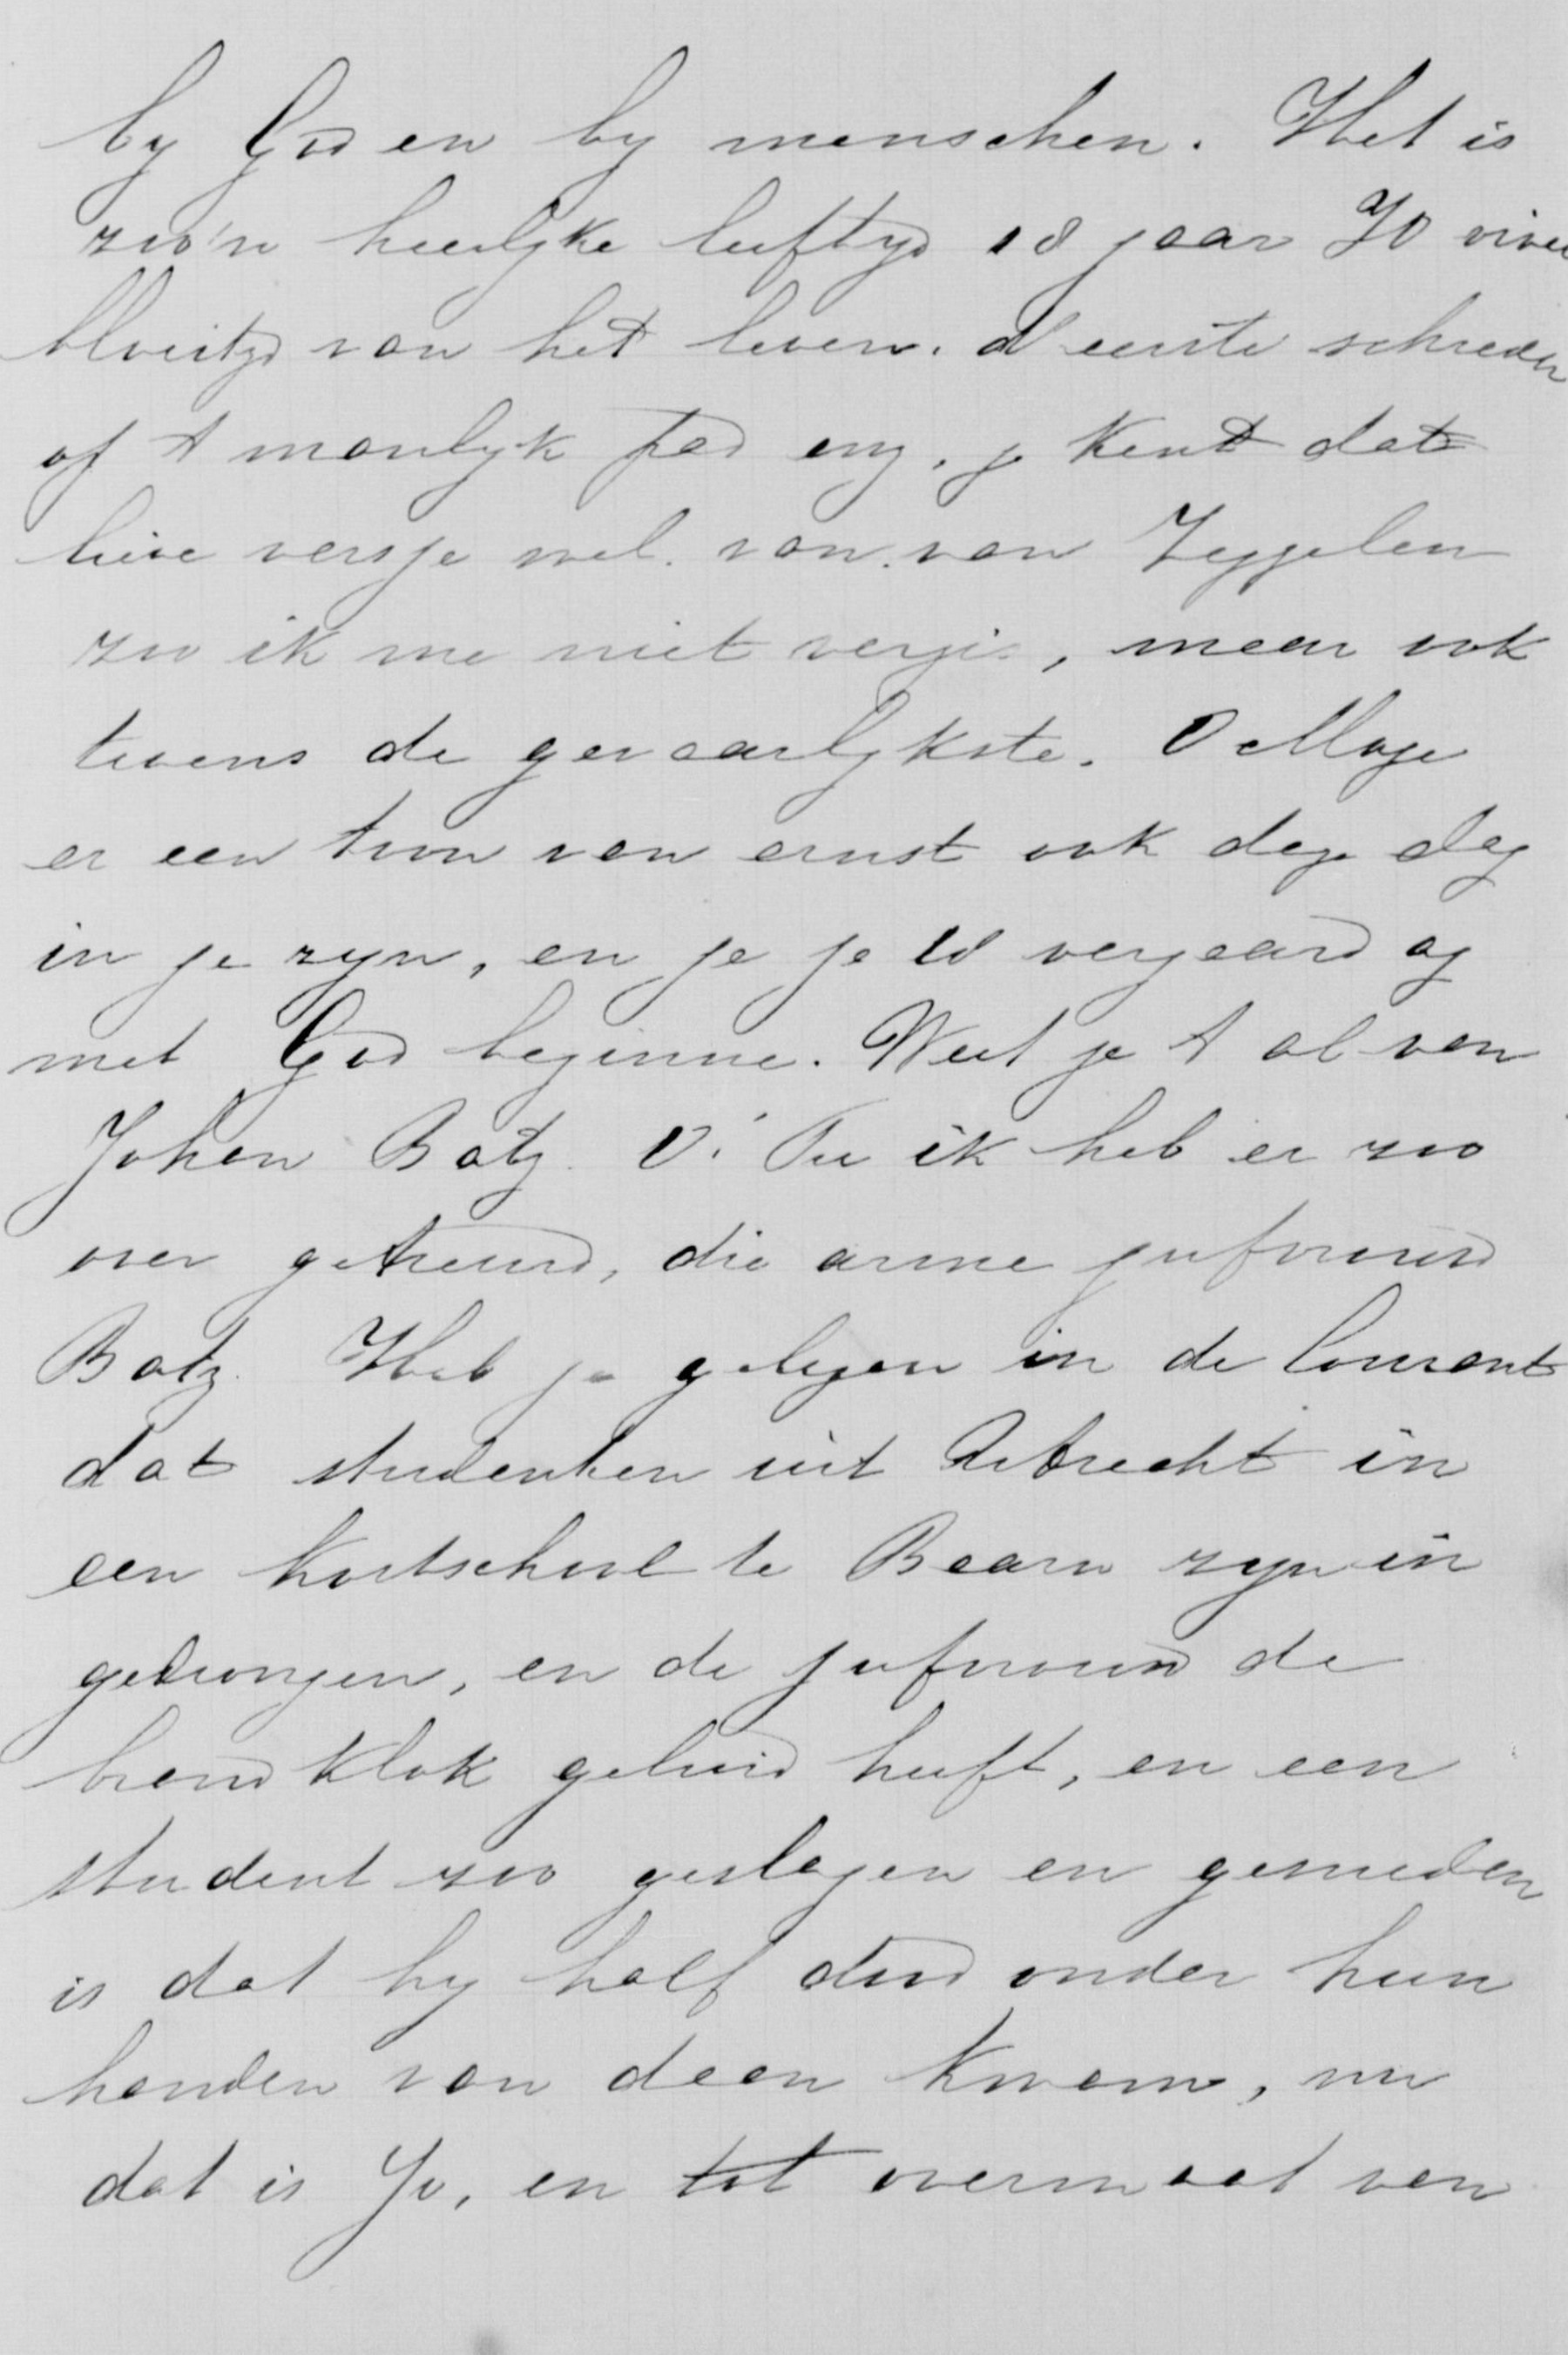 by God en by menschen. Het is
zoo'n heerlyke leeftyd 18 jaar Jo
bloeityd van het leven. d'eerste schreden
of 't manlyk pad enz, je kent dat
lieve versje wel. van. van Zeggelen
zoo ik me niet vergis, maar ook
tevens de gevaarlykste. O Moge
er een toon van ernst ook deze dag
in je zyn, en je je 18 verjaard ag
met God beginne. Weet je 't al van
Johan Batz. O! ik heb er zoo
over getreurd, die arme jufvrouw
Batz. Heb je gelezen in de Courant
dat studenten uit Utrecht in
een kostschool te Baarn zyn in
gedrongen, en de jufvrouw de
brandklok geluid heeft, en een
student zoo geslagen en gesneden
is dat hy half dood onder hun
handen van daan kwam, nu
dat is Jo, en tot overmaat van